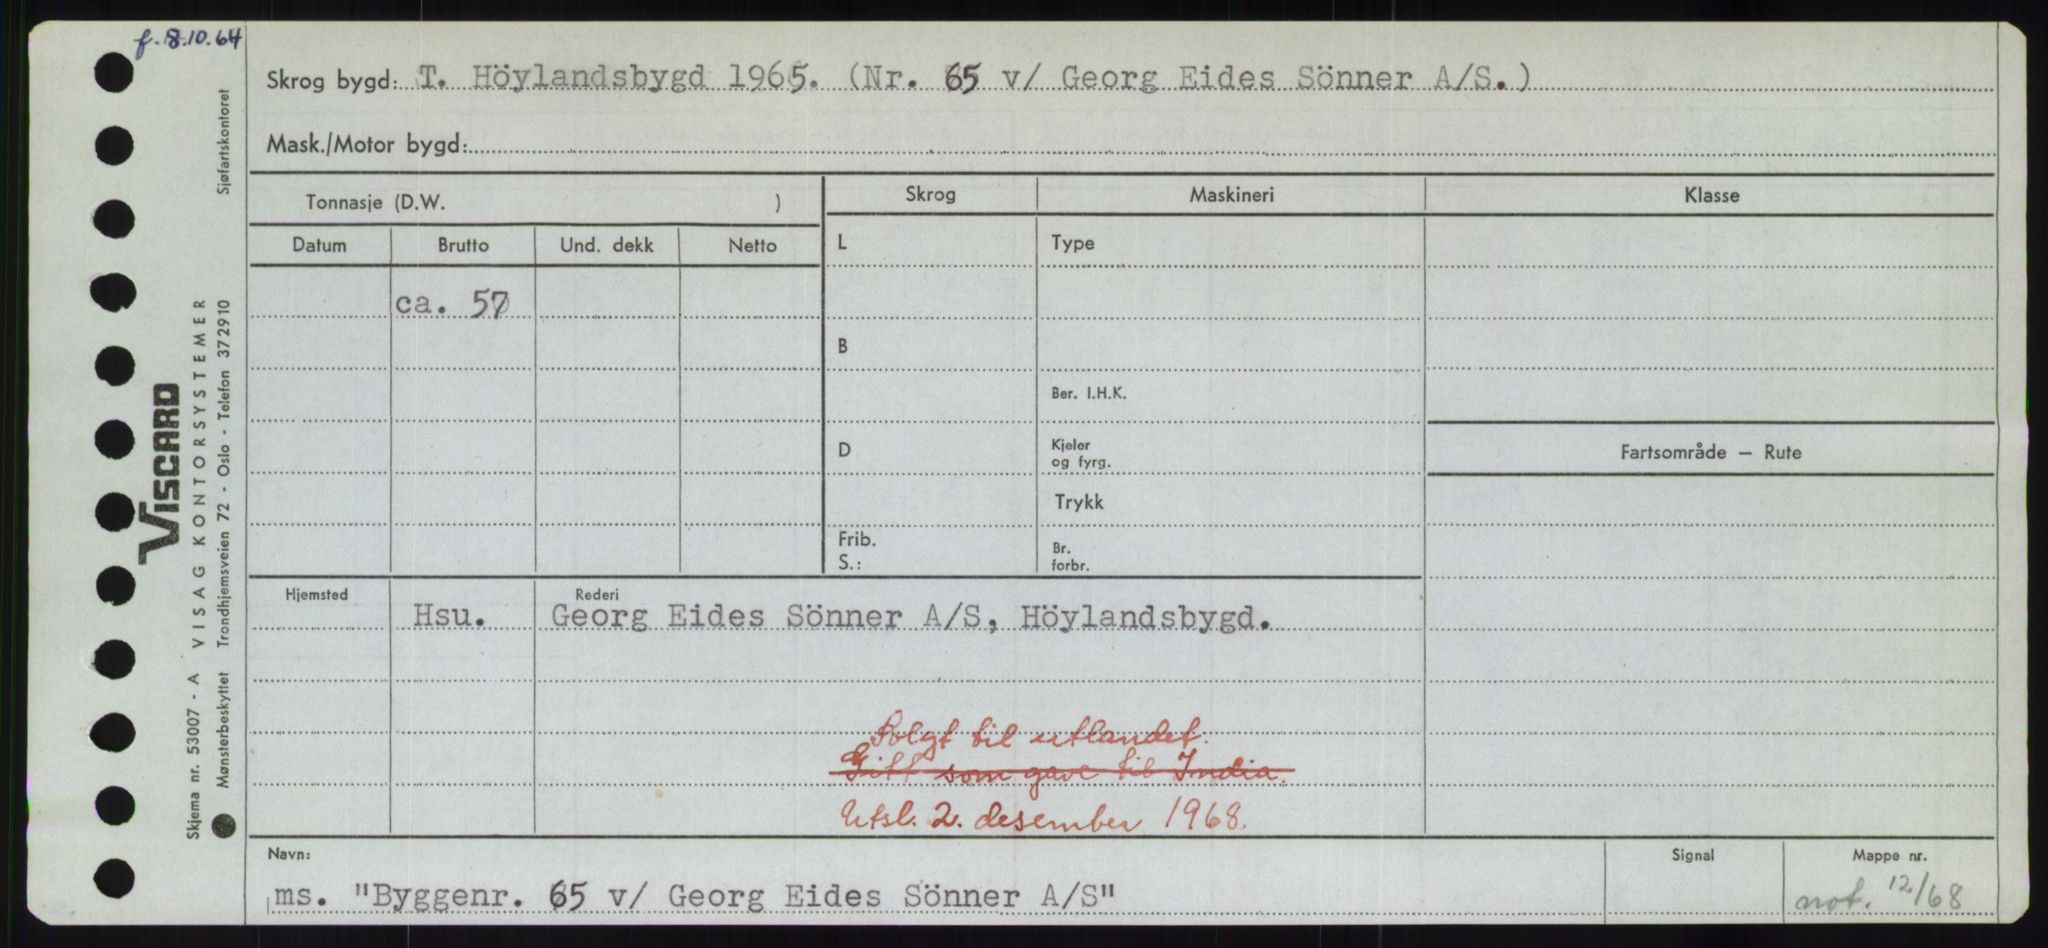 f. 8.10.64
Skrog bygd: T. Höylandsbygd 1965. (Nr. 65 v/ Georg Eides Sönner A/S.)
Mask./Motor bygd:
Tonnasje (D.W. )
Skrog
Maskineri
Klasse
Datum
Brutto
Und. dekk
Netto
L
Type
ca. 57
B
Ber. I.H.K.
D
Kjeler
og fyrg.
Fartsområde – Rute
Trykk
Frib.
S.:
Br.
forbr.
Hjemsted
Rederi
Hsu. Georg Eides Sönner A/S, Höylandsbygd.
Solgt til utlandet.
Gitt som gave til India.
Utsl. 2. desember 1968.
Navn:
Signal
Mappe nr.
ms. "Byggenr. 65 v/ Georg Eides Sönner A/S"
not. 12/68
VISCARD
VISAG KONTORSYSTEMER
Skjema nr. 53007 - A
Mønsterbeskyttet Trondhjemsveien 72 - Oslo - Telefon 372910
Sjøfartskontoret